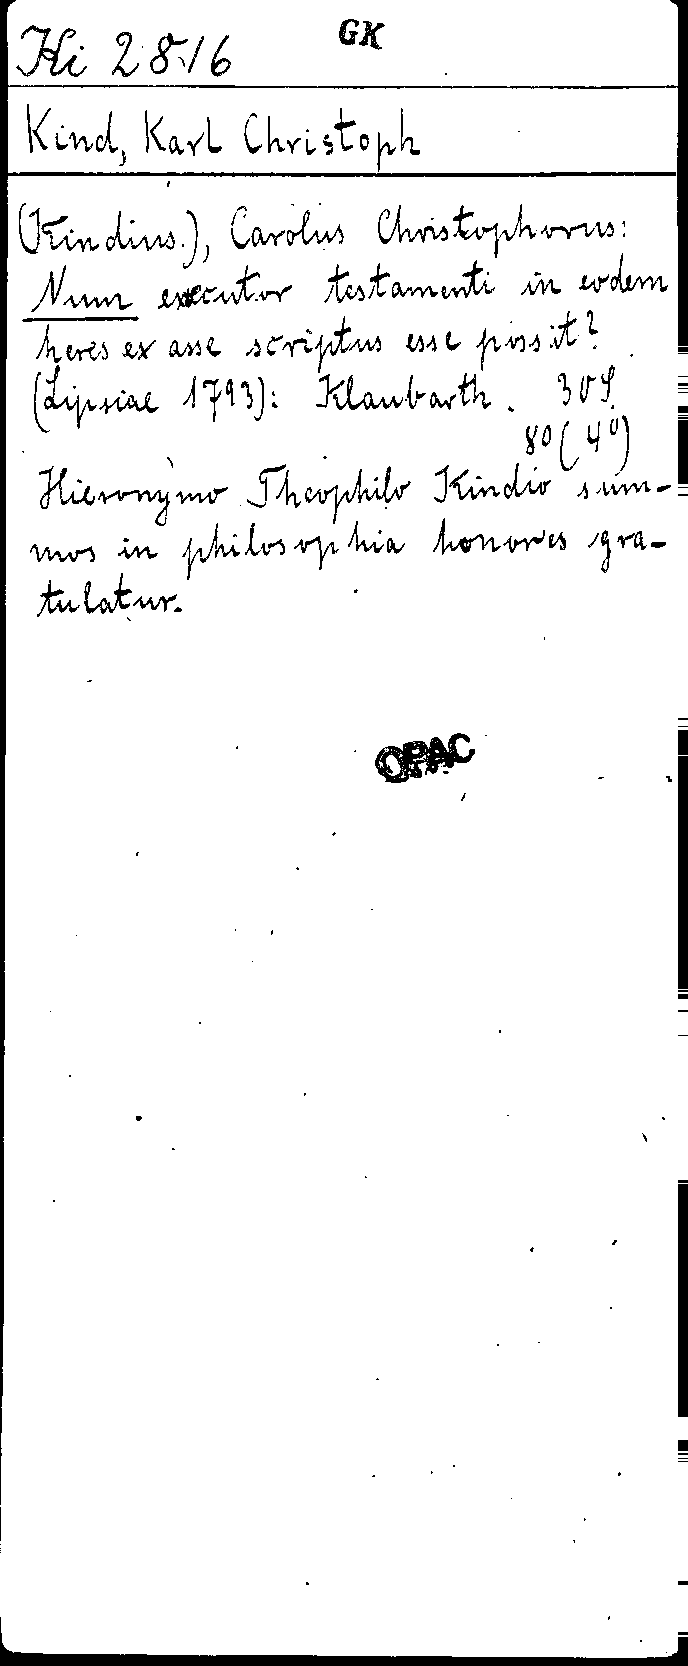 Ki 2816 GK
Kind, Karl Christoph
(Kindius.), Carolus Christophorus:
Num executor testamenti in eodem
heres ex asse scriptus esse possit?
(Lipsiae 1793): Klaubarth. 30 S.
80 (40)
Hieronymo Theophilo Kindio sum-
mos in philosophia honores gra-
tulatur.
OPAC